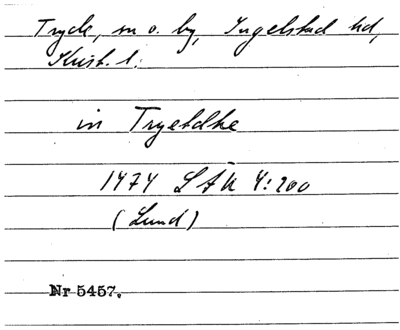 Tryde, sn o. by, Ingelstad hd,
Krist. l.
in Tryetdhe
1474 LÄU 4:200
(Lund)
Nr 5457.